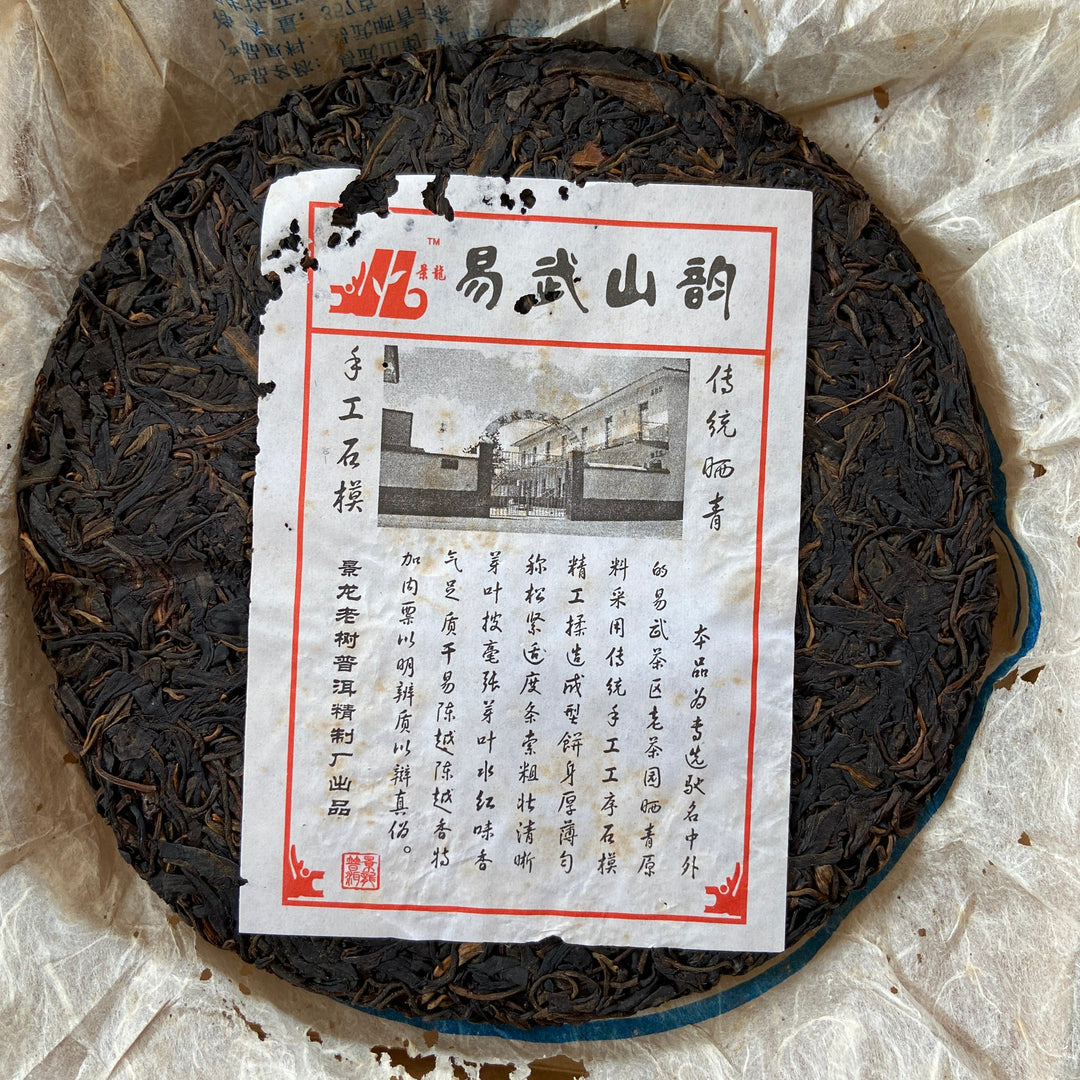 量：357克
TM
景龍
易武山韵
传统晒青
手工石模
本品为专选驰名中外
的易武茶区老茶园晒青原
料采用传统手工工序石模
精工揉造成型餅身厚薄匀
称松紧适度条索粗壮清晰
芽叶披毫张芽叶水红味香
气足质干易陈越陈越香特
加内票以明辨质以辩真伪。
景龙老树普洱精制厂出品
景龍
普洱